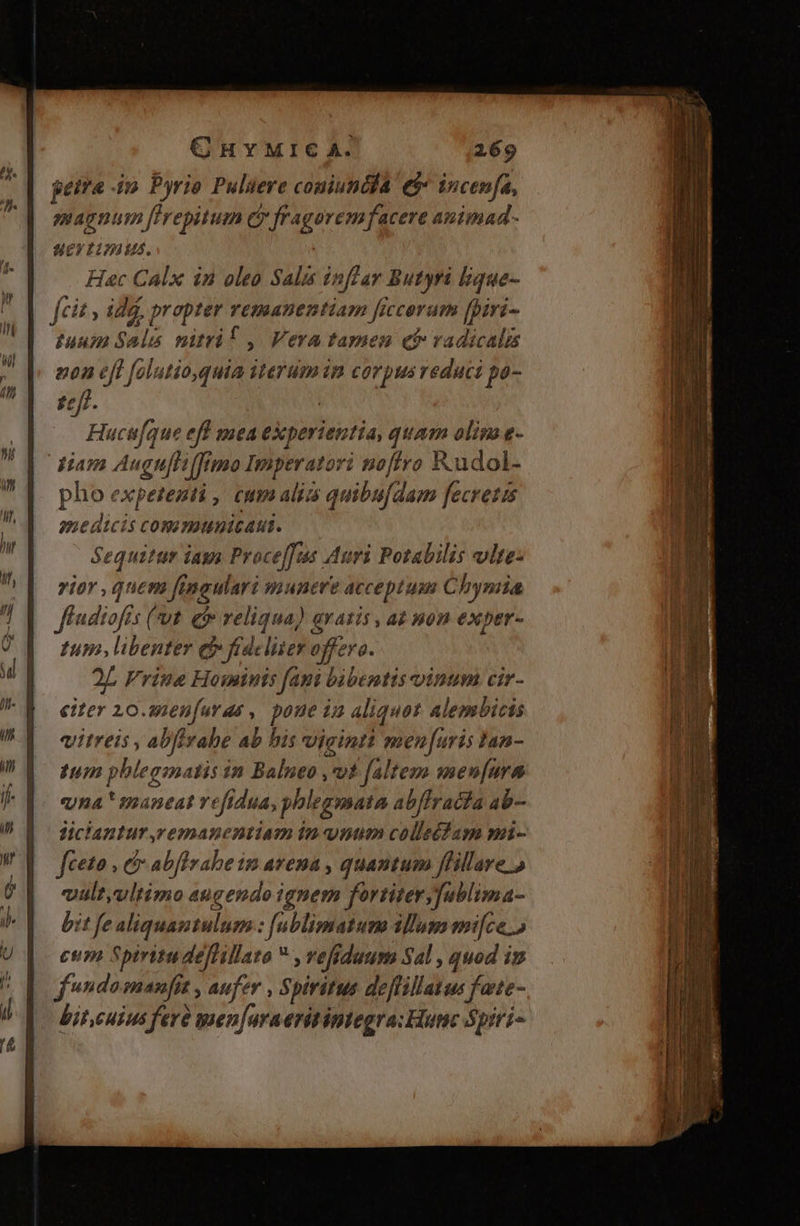 CHYMICA. 269
petra in Pyrio Puluere coniuncta & incensa,
magnum strepitum & fragorem facere animad-
uertimus.
Hæc Calx in oleo Salis instar Butyri lique-
scit, idq; propter remanentiam siccorum spiri-
tuum Salis nitri f, Vera tamen & radicalis
non est solutio, quia iterùm in corpus reduci po-
test.
Hucusque est mea experientia, quam olim e-
tiam Augustissimo Imperatori nostro Rudol-
pho expetenti, cum aliis quibusdam secretis
medicis communicaui.
Sequitur iam Processus Auri Potabilis vlte-
rior, quem singulari munere acceptum Chymiæ
studiosis (vt & reliqua) gratis, at non exper-
tum, libenter & fideliter offero.
♃ Vrinæ Hominis sani bibentis vinum cir-
citer 20. mensuras, pone in aliquot alembicis
vitreis, abstrahe ab his viginti mensuris tan-
tum phlegmatis in Balneo, vt saltem mensura
vna t maneat residua, phlegmata abstracta ab-
iiciantur, remanentiam in vnum collectam mi-
sceto, & abstrahe in arena, quantum stillare
vult, vltimo augendo ignem fortiter, sublima-
bit se aliquantulum: sublimatum illum misce
cum Spiritu destillato u, residuum Sal, quod in
fundo mansit, aufer, Spiritus destillatus fœte-
bit, cuius ferè mensura erit integra: Hunc Spiri-